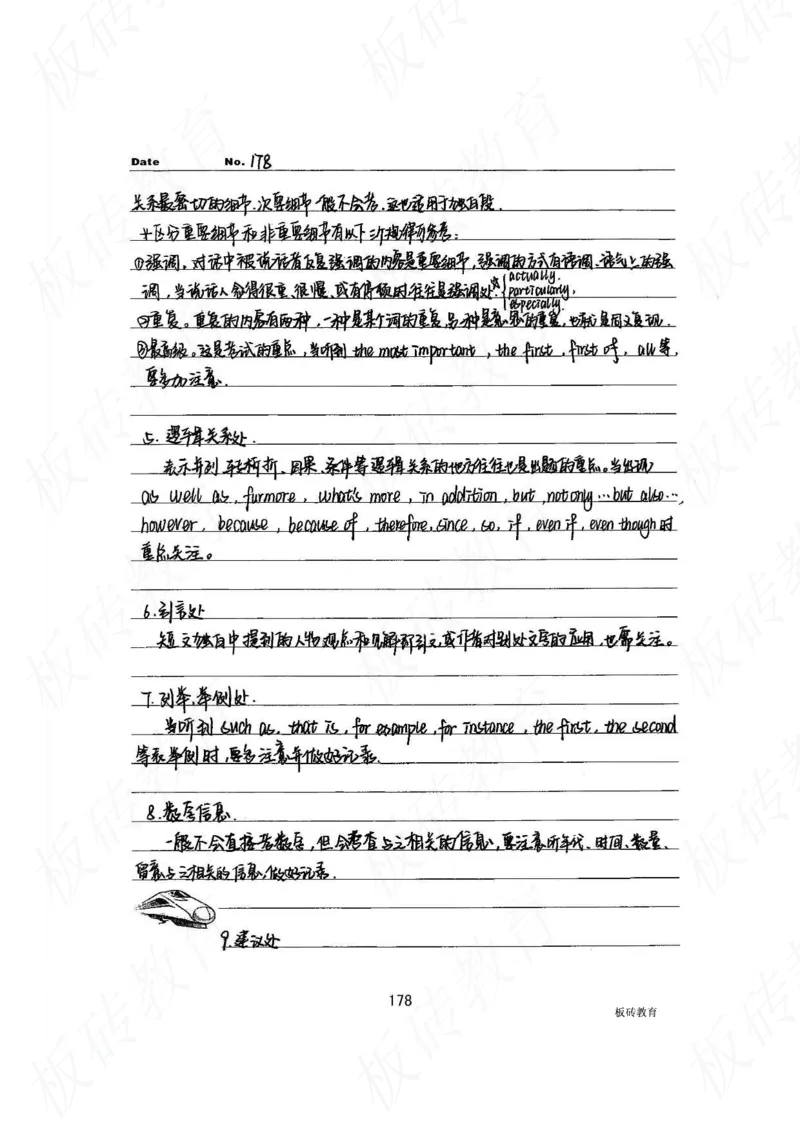 Date No. 178
关系最密切的细节.次要细节一般不会考.这也适用于独白段.
十区分重要细节和非重要细节有以下三个规律可参考:
①强调。对话中被说话者反复强调的内容是重要细节,强调的方式有语调、语气上的强
调,当说话人念得很重、很慢、或有停顿时往往是强调处。☆{actually.
particularly,
especially.
②重复。重复的内容有两种,一种是某个词的重复,另一种是意思的重复,也就是同义复现.
③最高级。这是考试的重点,当听到 the most important , the first , first of , all 等,
要多加注意.
5. 逻辑关系处.
表示并列、转折、因果、条件等逻辑关系的地方往往也是出题的重点。当出现
as well as , furmore , what's more , in addition , but , not only … but also …,
however , because , because of , therefore , since , so , if , even if , even though 时
重点关注。
6. 引言处
短文独白中提到的人物观点和见解即引文,或作者对别处文字的应用,也需关注。
7. 列举,举例处.
当听到 such as, that is , for example , for instance , the first , the second
等表举例时,要多注意并做好记录.
8. 数字信息.
一般不会直接考数字,但会考查与之相关的信息,要注意听年代、时间、数量、
留意与之相关的信息,做好记录.
9. 建议处
178
板砖教育